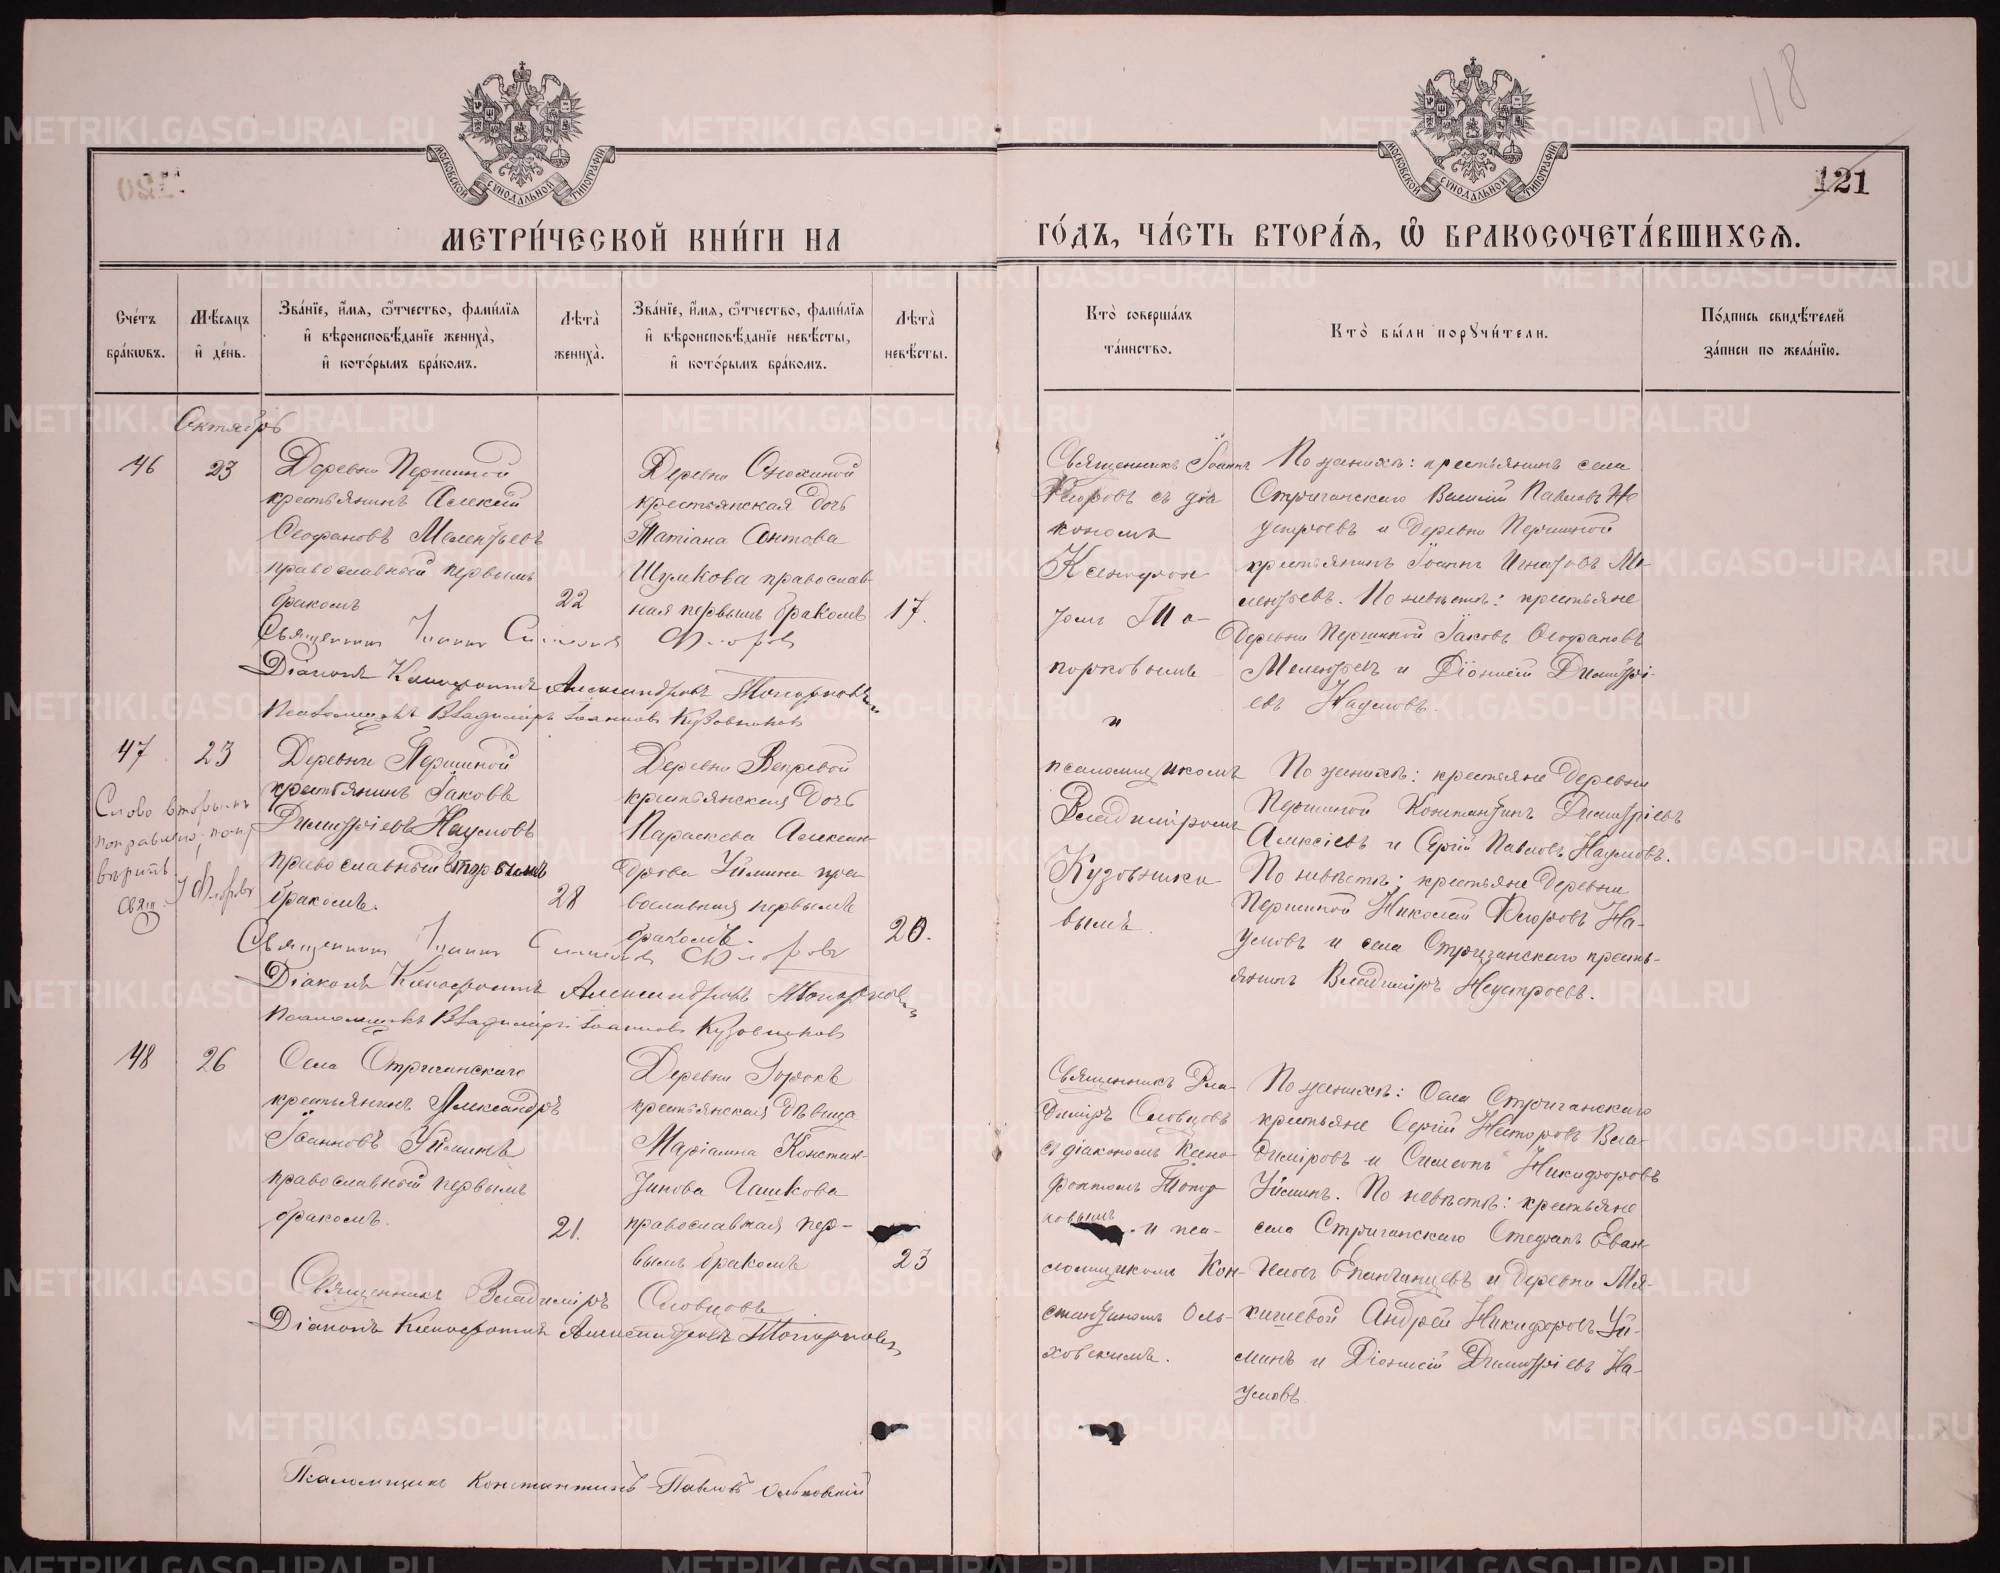 118
121
МОСКОВСКОЙ СѴНОДАЛЬНОЙ ТИПОГРАФІИ
МОСКОВСКОЙ СѴНОДАЛЬНОЙ ТИПОГРАФІИ
МЕТРИ́ЧЕСКОЙ КНИ́ГИ НА
ГО́ДЪ, ЧА́СТЬ ВТОРА́Ѧ, Ѽ БРАКОСОЧЕТА́ВШИХСѦ.
Сче́тъ бра́кѡвъ.
Мѣ́сѧцъ и҆ де́нь.
Зва́нїе, и҆́мѧ, ѻ҆́тчество, фами́лїѧ и҆ вѣроисповѣ́данїе жениха̀, и҆ кото́рымъ бра́комъ.
Лѣта̀ жениха̀.
Зва́нїе, и҆́мѧ, ѻ҆́тчество, фами́лїѧ и҆ вѣроисповѣ́данїе невѣ́сты, и҆ кото́рымъ бра́комъ.
Лѣта̀ невѣ́сты.
Кто̀ соверша́лъ та́инство.
Кто̀ бы́ли порꙋчи́тели.
По́дпись свидѣ́телей за́писи по жела́нїю.
Октябрь
46
23
Деревни Першиной
крестьянинъ Алексій
Ѳеофановъ Мелентьевъ
православный первымъ
бракомъ
22
Деревни
крестьянская дочь
Татіана
Шумкова православ-
ная первымъ бракомъ
17.
Священникъ Іоаннъ
Ѳеоровъ съ діа
кономъ
Ксенофон
томъ То-
порковымъ
и
псаломщикомъ
Владиміромъ
Кузовнико
вымъ
По женихѣ: крестьянинъ села
Стриганскаго Василій Павловъ Не
устроевъ и деревни Першиной
крестьянинъ Іоаннъ Игнатовъ Ме-
лентьевъ. По невѣстѣ: крестьяне
Деревни Першиной Іаковъ Ѳеофановъ
Мелентьевъ и Діонисій Димитрі-
евъ Наумовъ.
Священникъ Іоаннъ Симеоновъ Флоровъ
Діаконъ Ксенофонтъ Александровъ Топорковъ
Псаломщикъ Владиміръ Іоанновъ Кузовниковъ
47
23
Слово вторымъ
поправлено,
вѣрить
свящ. І Флоровъ
Деревни Першиной
крестьянинъ Іаковъ
Димитріевъ Наумовъ
православный вторымъ
бракомъ.
28
Деревни Вепревой
крестьянская дочь
Параскева Алексан-
дрова Уймина пра
вославная первымъ
бракомъ.
20.
По женихѣ: крестьяне Деревни
Першиной Константинъ Димитріевъ
Алексіевъ и Сергій Павловъ Наумовъ.
По невѣстѣ: крестьяне деревни
Першиной Николай Ѳеоровъ На-
умовъ и села Стриганскаго кресть-
янинъ Владиміръ Неустроевъ.
Священникъ Іоаннъ Симеоновъ Флоровъ
Діаконъ Ксенофонтъ Александровъ Топорковъ
Псаломщикъ Владиміръ Іоанновъ Кузовниковъ
48
26
Села Стриганскаго
крестьянинъ Александръ
Іоанновъ Уйминъ
православный первымъ
бракомъ.
21.
Деревни Горокъ
крестьянская дѣвица
Маріамна Констан-
тинова Чашкова
православная пер-
вымъ бракомъ
23
Священникъ Вла-
диміръ Словцовъ
съ діакономъ Ксено-
фонтомъ Топор
ковымъ и пса-
ломщикомъ Кон-
стантиномъ Оль-
ховскимъ.
По женихѣ: Села Стриганскаго
крестьяне Сергій Несторовъ Вла-
диміровъ и Симеонъ Никифоровъ
Уйминъ. По невѣстѣ: крестьяне
села Стриганскаго Стефанъ Еван-
геловъ Епанчинцевъ и деревни Мя-
кишевой Андрей Никифоровъ Уй-
минъ и Діонисій Димитріевъ На-
умовъ.
Священникъ Владиміръ Словцовъ
Діаконъ Ксенофонтъ Александровъ Топорковъ
Псаломщикъ Константинъ Павловъ Ольховскій
METRIKI.GASO-URAL.RU